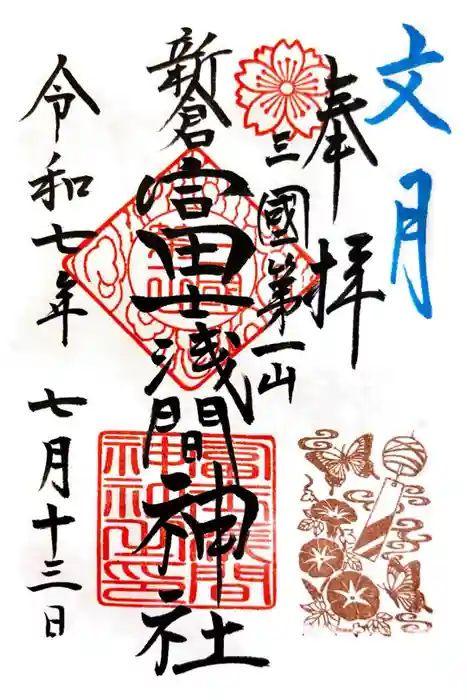 文月
奉拝
三國第一山
新倉富士浅間神社
令和七年 七月十三日